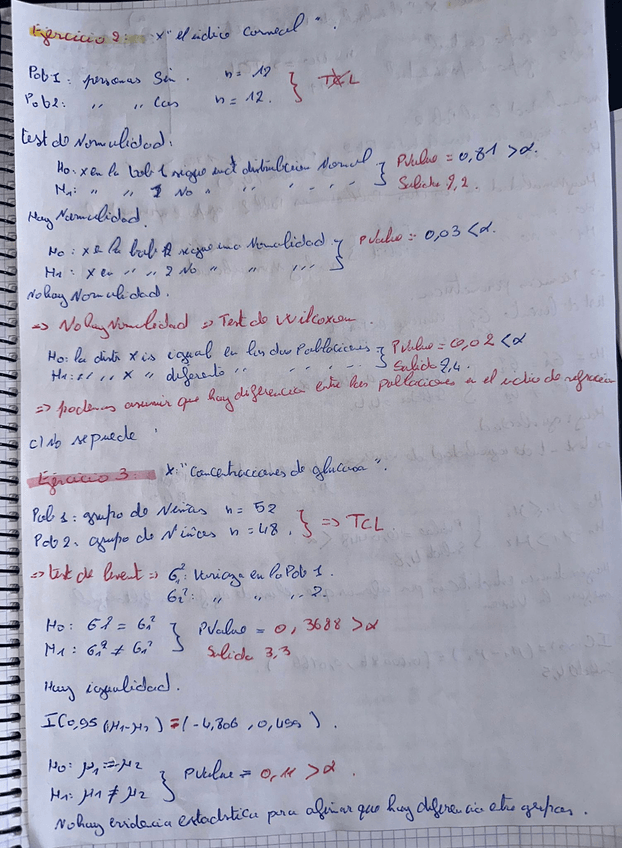 Ejercicio 2: X "el indice corneal".
Pob 1: personas Sin. n = 19 } TCL
Pob 2: ,, ,, Con n = 12.
test de Normalidad:
H0: x en la Pob 1 sigue una distribucion Normal } PValue = 0,81 > α.
H1: ,, ,, 1 No ,, ,, ,, ,, Salida 2,2.
Hay Normalidad.
H0: x en la Pob 2 sigue una Normalidad } PValue = 0,03 < α.
H1: x en ,, ,, 2 No ,, ,, ,,
No hay Normalidad.
=> No hay Normalidad => Test de Wilcoxon
H0: la distr X is igual en las dos Poblaciones } PValue = 0,02 < α
H1: ,, ,, X ,, diferente ,, ,, Salida 2,4.
=> podemos asumir que hay diferencia entre las poblaciones en el indice de refraccion
c) No se puede
Ejercicio 3: X: "Concentracciones de glucosa".
Pob 1: grupo de Niñas n = 52 } => TCL.
Pob 2: grupo de Niños n = 48.
=> test de levent => σ1²: Varianza en la Pob 1.
σ2²: ,, ,, ,, 2.
H0: σ1² = σ2² } PValue = 0,3688 > α
H1: σ1² ≠ σ2² Salida 3,3
Hay igualidad.
I(0,95 (μ1-μ2) = (-4,806, 0,499).
H0: μ1 = μ2 } PValue = 0,11 > α.
H1: μ1 ≠ μ2
No hay evidencia estadistica para afirmar que hay diferencia entre grupos.